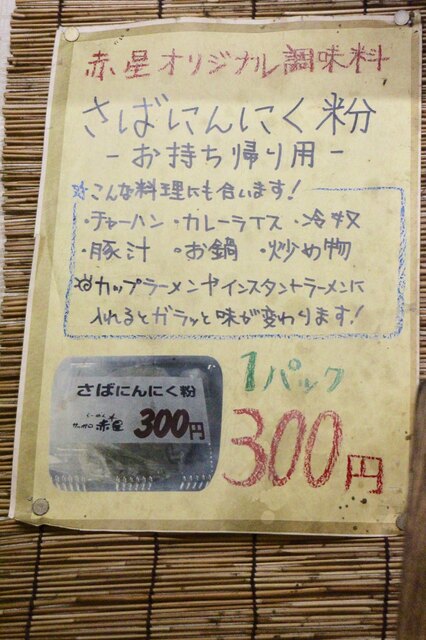 赤星オリジナル調味料
さばにんにく粉
-お持ち帰り用-
☆こんな料理にも合います!
・チャーハン・カレーライス・冷奴
・豚汁・お鍋・炒め物
カップラーメンやインスタントラーメンに
入れるとガラッと味が変わります!
さばにんにく粉
らーめん
サッポロ 赤星 300円
1パック
300円